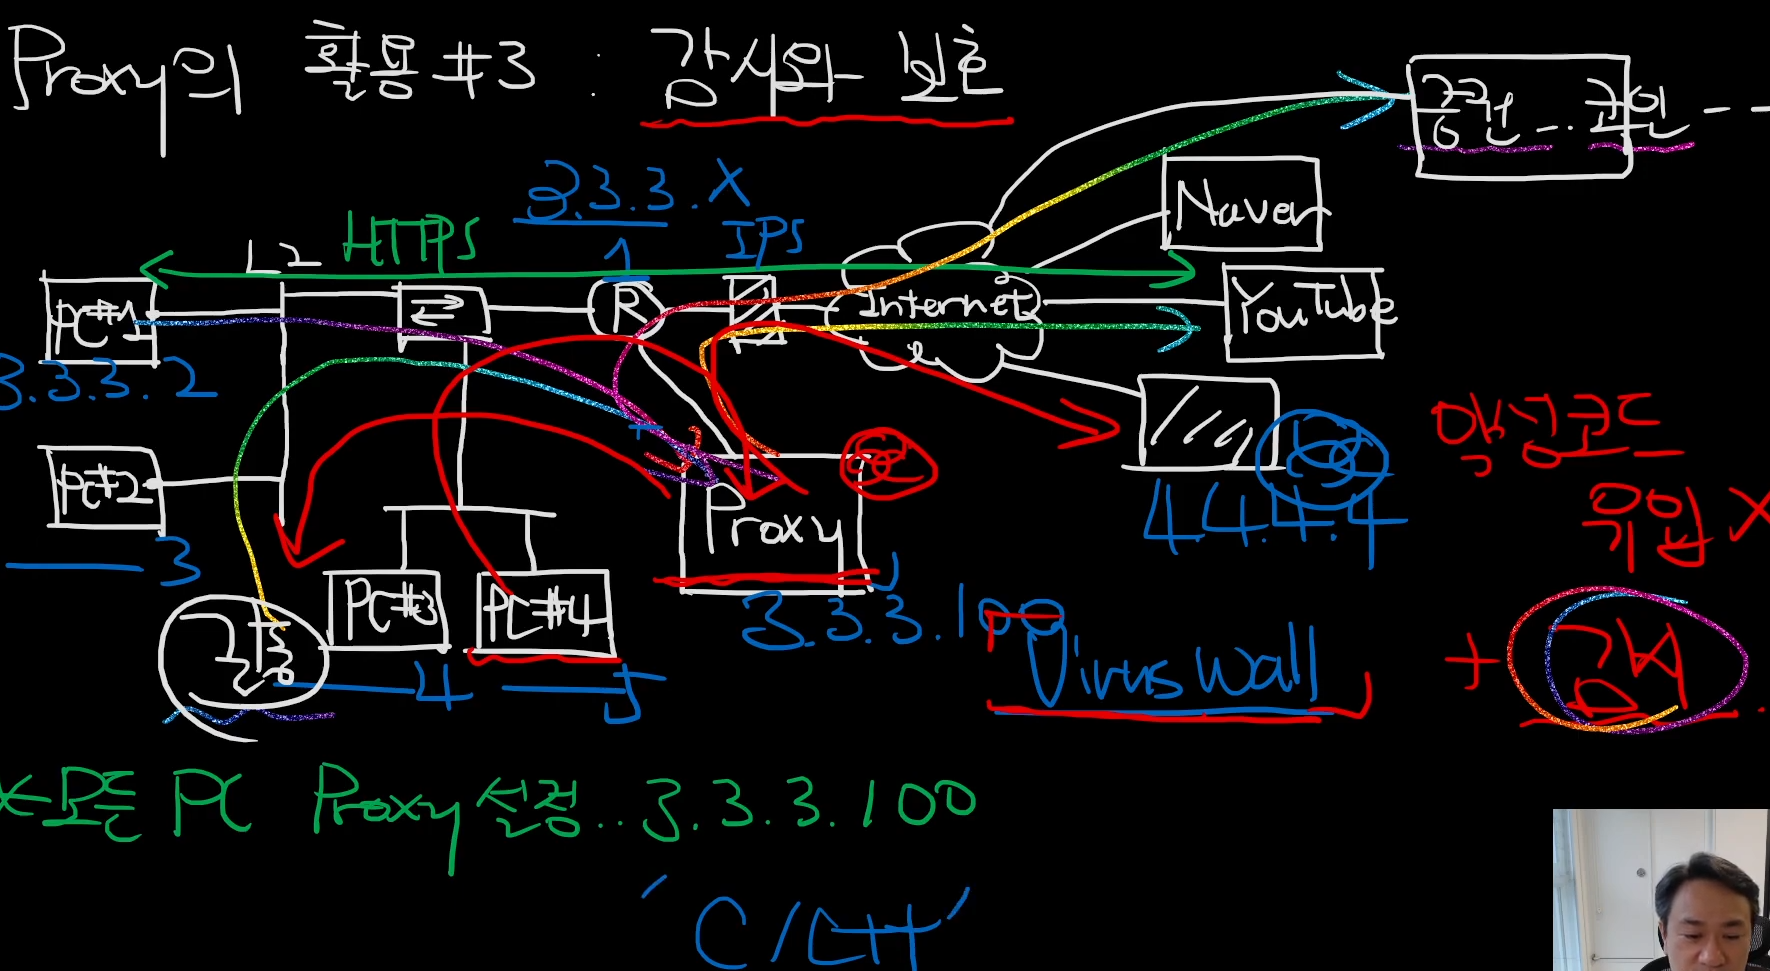 Proxy의 활용 #3 : 감시와 보호
3.3.3.X
HTTPS
1
IPS
L2
PC#1
3.3.3.2
R
Internet
Naver
YouTube
구인
PC#2
3
Proxy
4.4.4.4
악성코드
유입 X
PC#3
PC#4
4
5
3.3.3.100
Virus Wall
+ 감시
*모든 PC Proxy 설정.. 3.3.3.100
'C/C++'